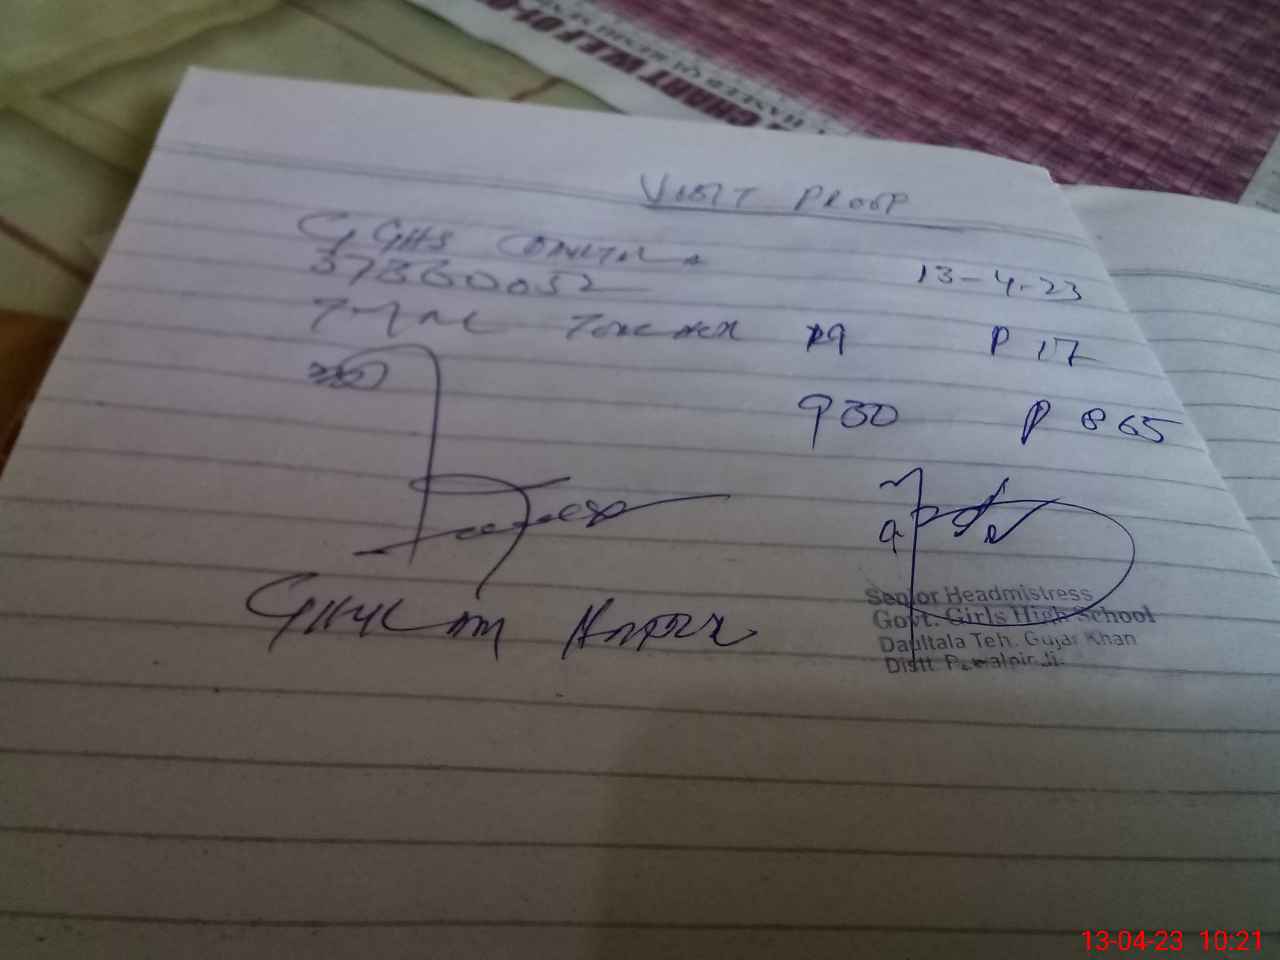 CHART WEF 01-0
VISIT PROOF
GGHS
37330052 13-4-23
Total Teacher 19 P 17
930 P 865
Ghulam
Senior Headmistress
Govt. Girls High School
Daultala Teh. Gujar Khan
Distt Rawalpindi.
13-04-23 10:21